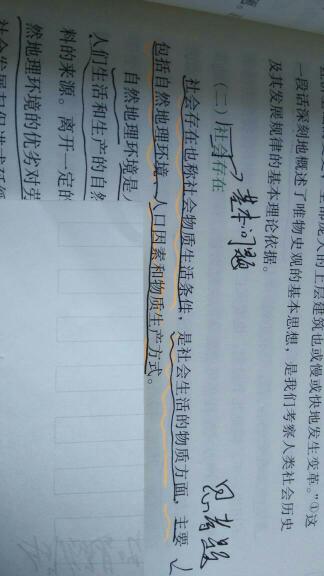 上层建筑也或慢或快地发生变革。”①这
一段话深刻地概述了唯物史观的基本思想，是我们考察人类社会历史
及其发展规律的基本理论依据。
（二）社会存在
基本问题
思考题
社会存在也称社会物质生活条件，是社会生活的物质方面，主要
包括自然地理环境、人口因素和物质生产方式。
自然地理环境是人
人们生活和生产的自然
料的来源。离开一定的
然地理环境的优劣对